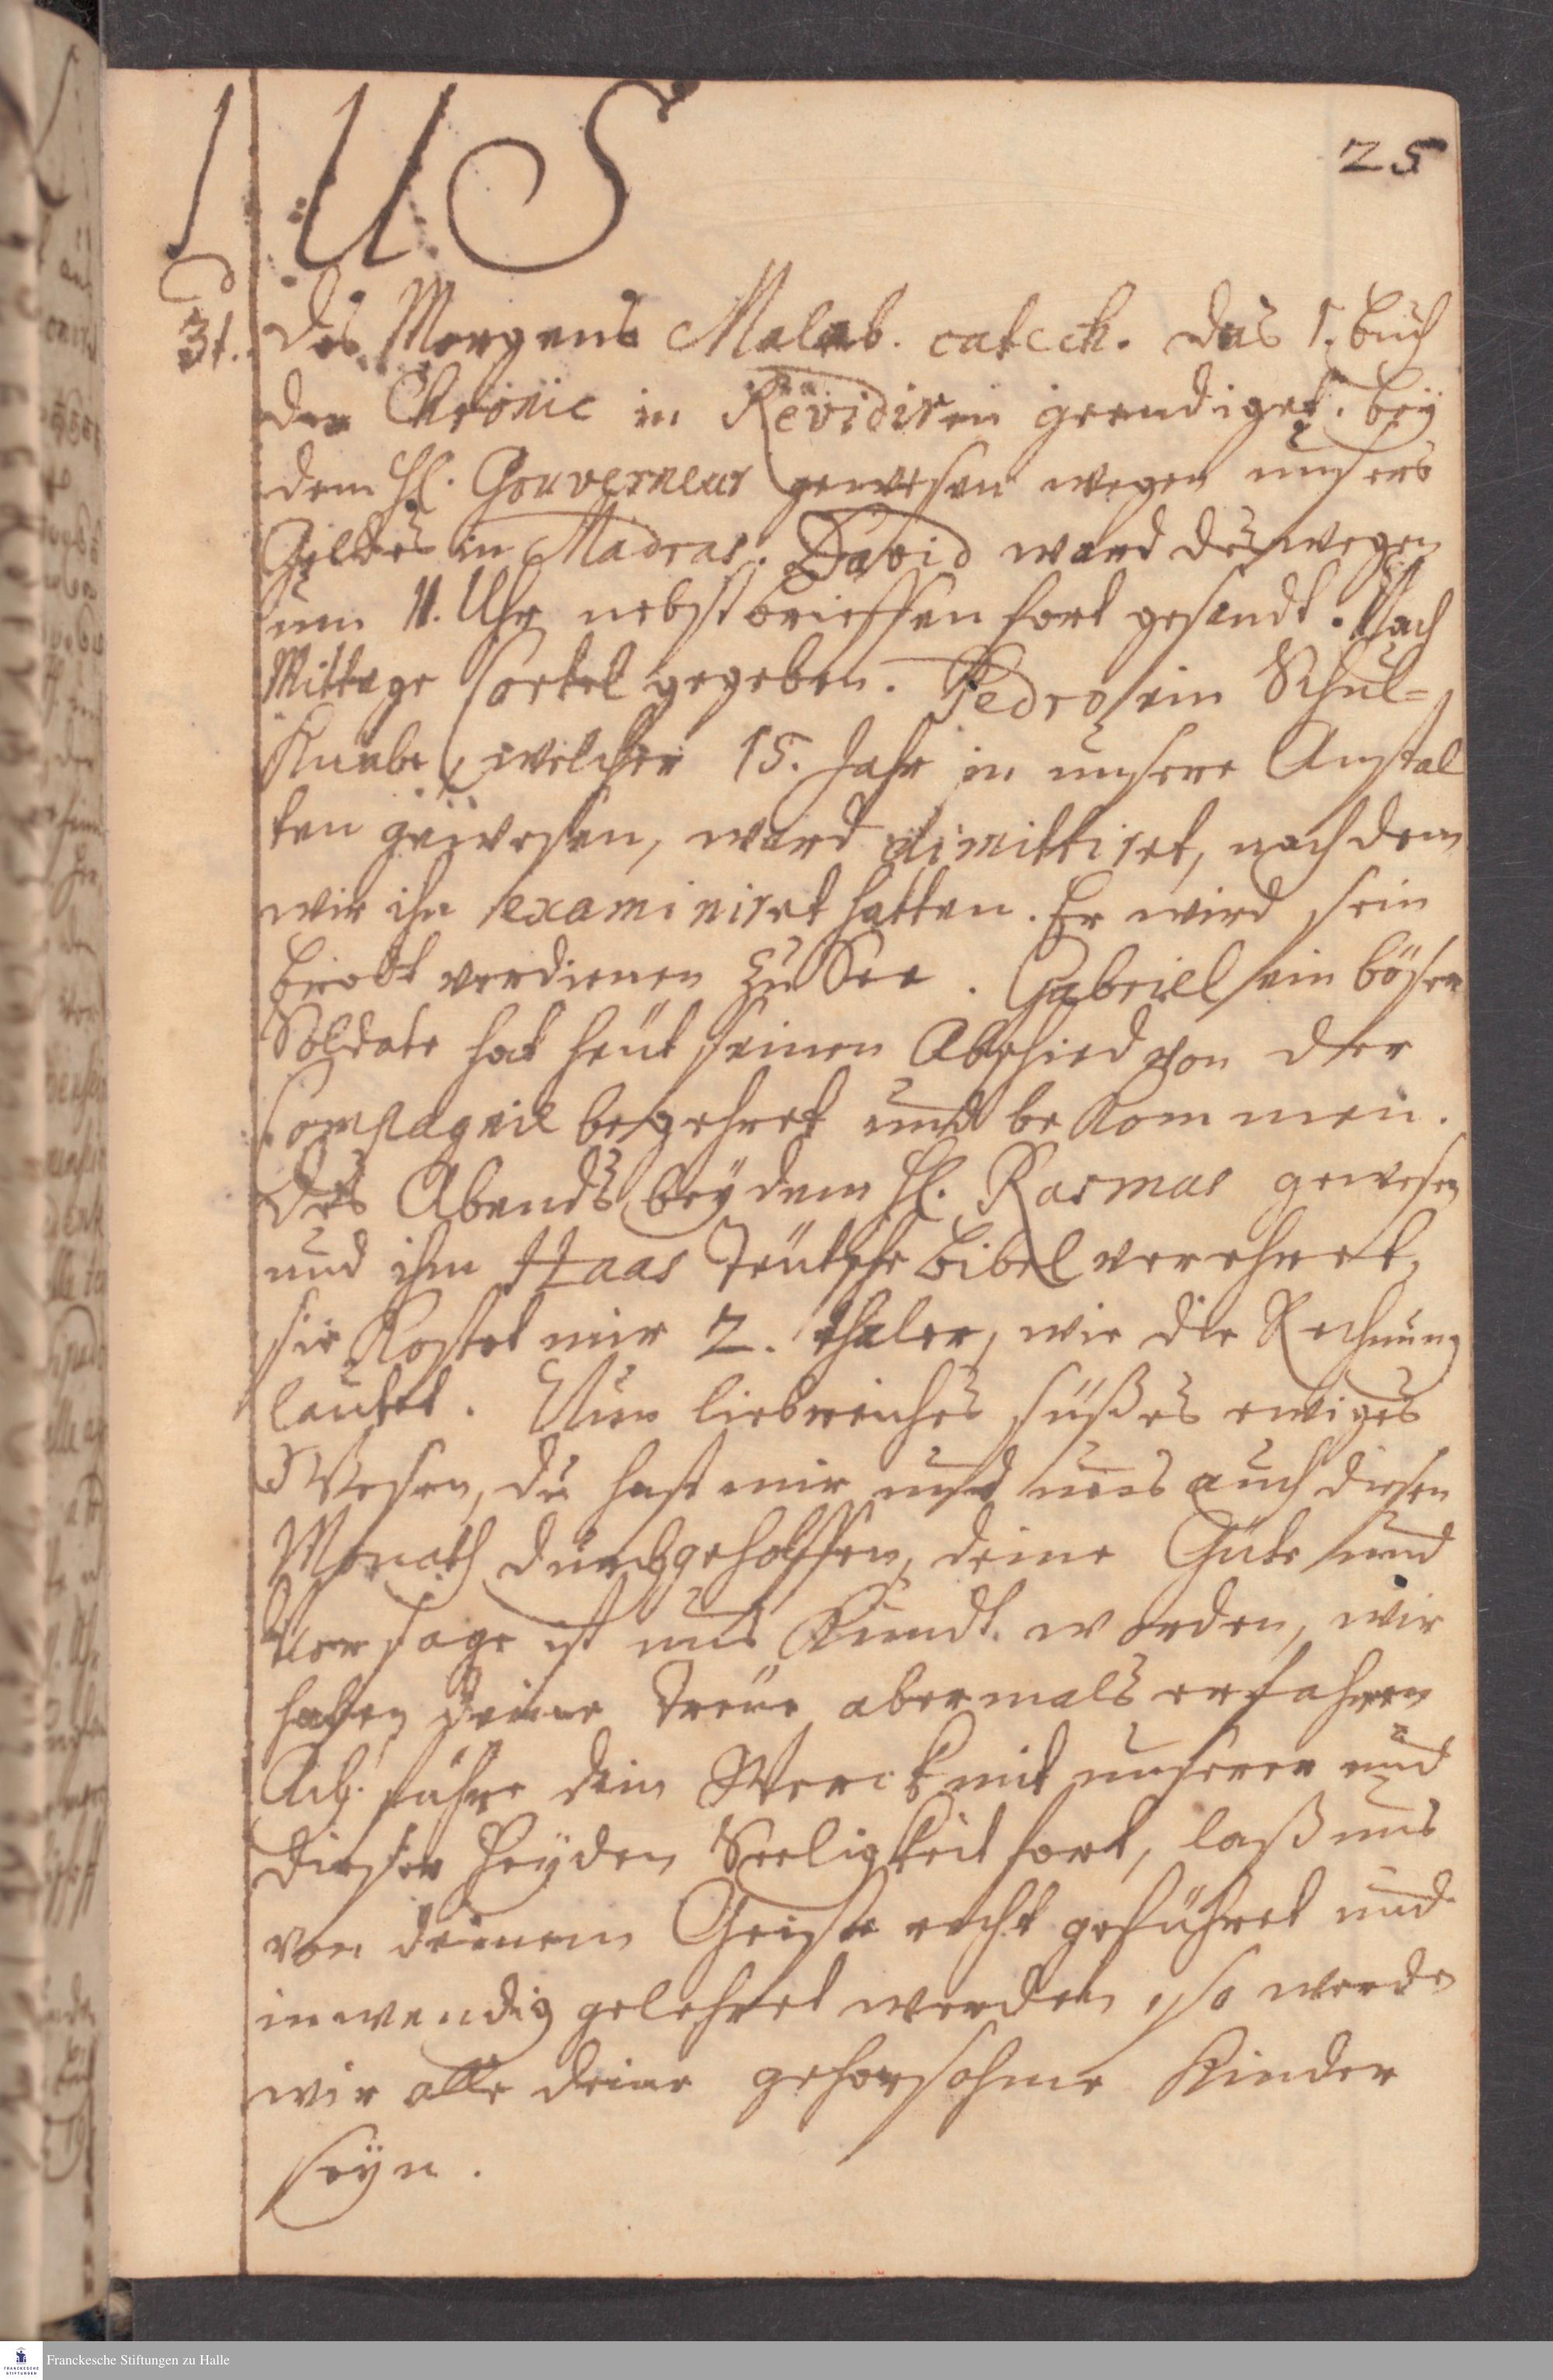 IUS
25
31. Des Morgens Malab. catech. das 1. Buch
der Chronic in Revidiren geendiget. bey
dem H. Gouverneur gewesen wegen unsers
Geldes in Madras. David ward deswegen
um 11. Uhr nebst brieffen fort gesandt. Nach
Mittage Cortel gegeben. Pedro ein Schul-
Knabe, welcher 15. Jahr in unsere Anstal
ten gewesen, ward dimittiret, nach dem
wir ihn examiniret hatten. Er wird sein
brodt verdienen zu See. Gabriel ein böser
Soldate hat heut seinen Abschied von der
Compagnie begehret und bekommen.
Des Abends bey dem H. Rasmas gewesen
und ihm Haas Teutsche Bibel verehret,
sie Kostet mir 2. thaler, wie die Rechnung
lautet. Nun liebreiches süßes ewiges
Wesen, du hast mir und uns auch diesen
Monath durchgeholffen, deine Güte und
Vorsage ist uns Kundt worden, wir
haben deine treue abermals erfahren
Ach führe dein Werck mit unserer und
dieser Heyden Seeligkeit fort, laß uns
von deinem Geiste recht geführet und
inwendig gelehret werden, so werde
wir alle deine gehorsahme Kinder
seyn.
FRANCKESCHE STIFTUNGEN
Franckesche Stiftungen zu Halle